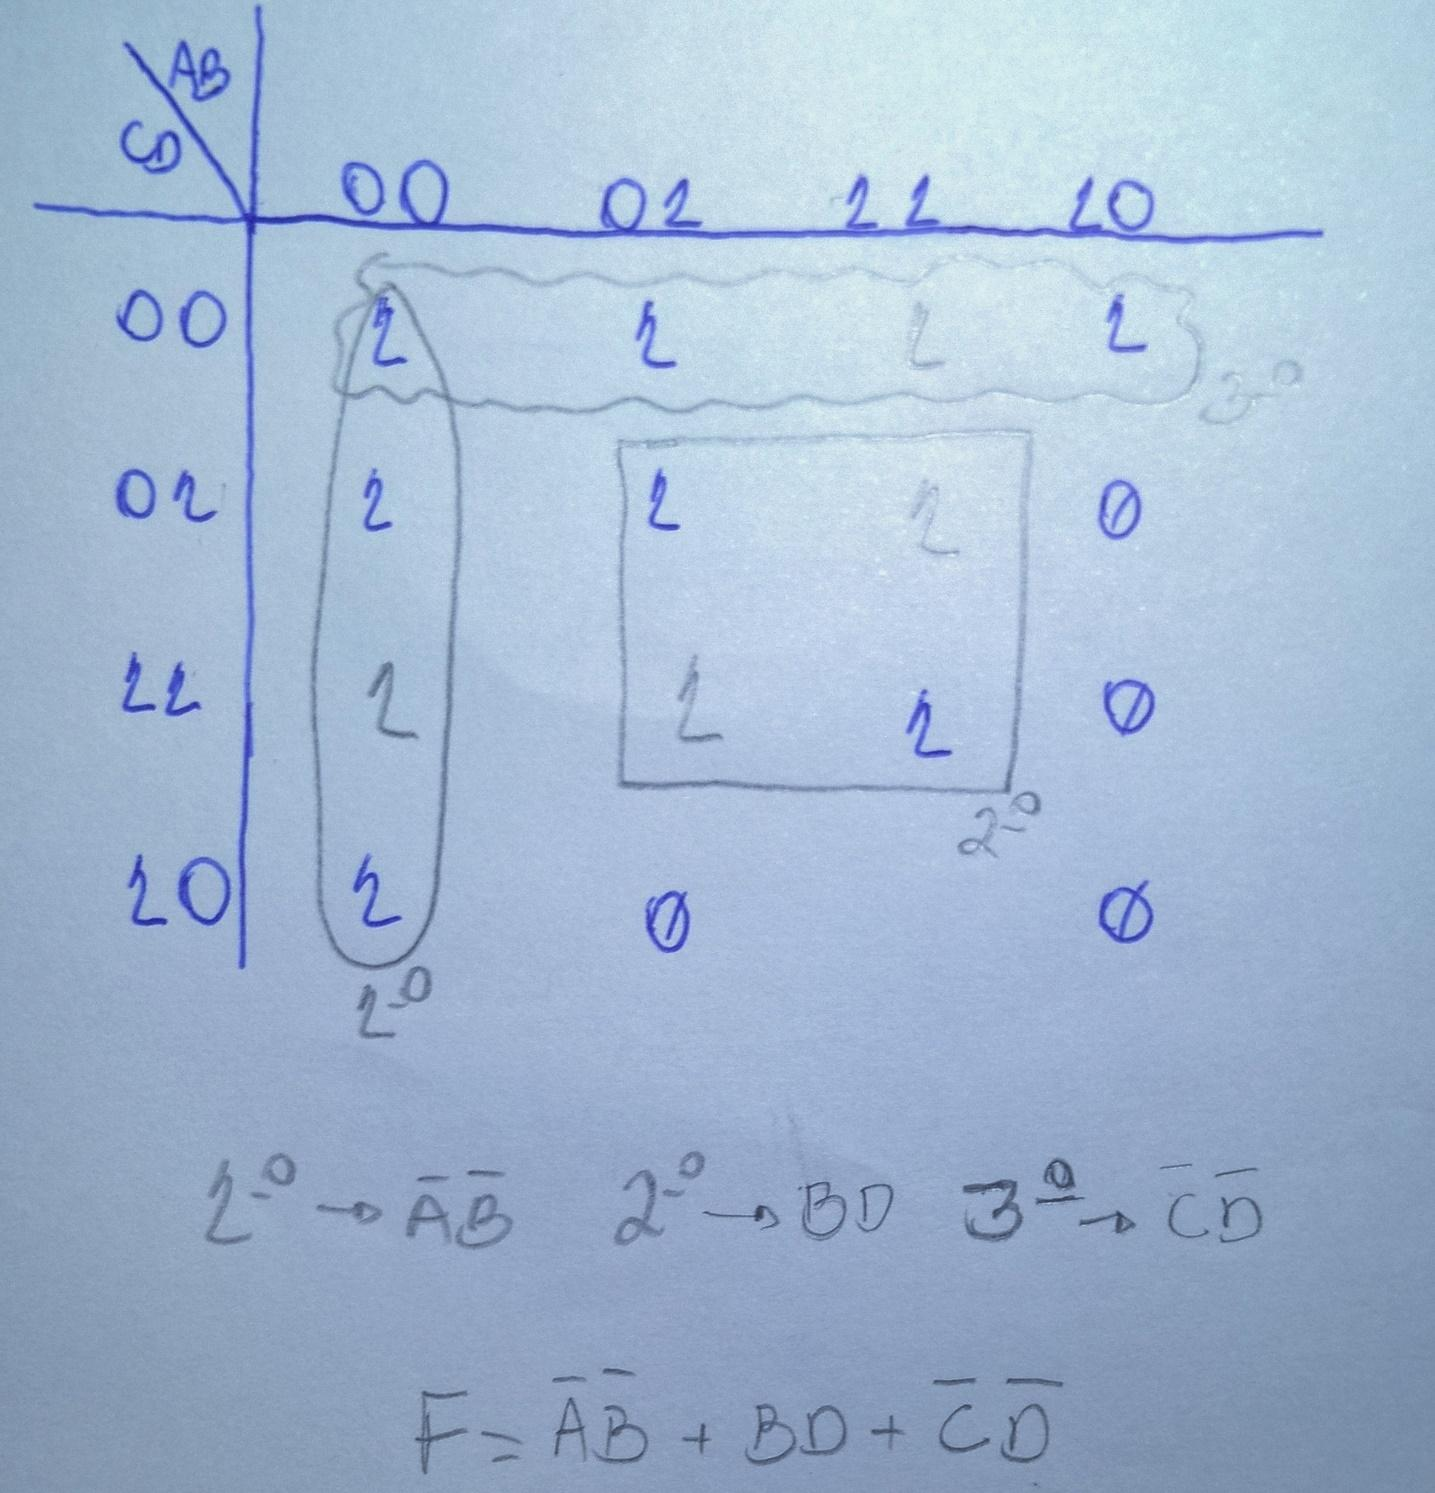 AB
CD
00 01 11 10
00 1 1 1 1
3º
01 1 1 1 0
11 1 1 1 0
2º
10 1 0 0
1º
1º → A̅ B̅ 2º → BD 3º → C̅ D̅
F = A̅ B̅ + BD + C̅ D̅